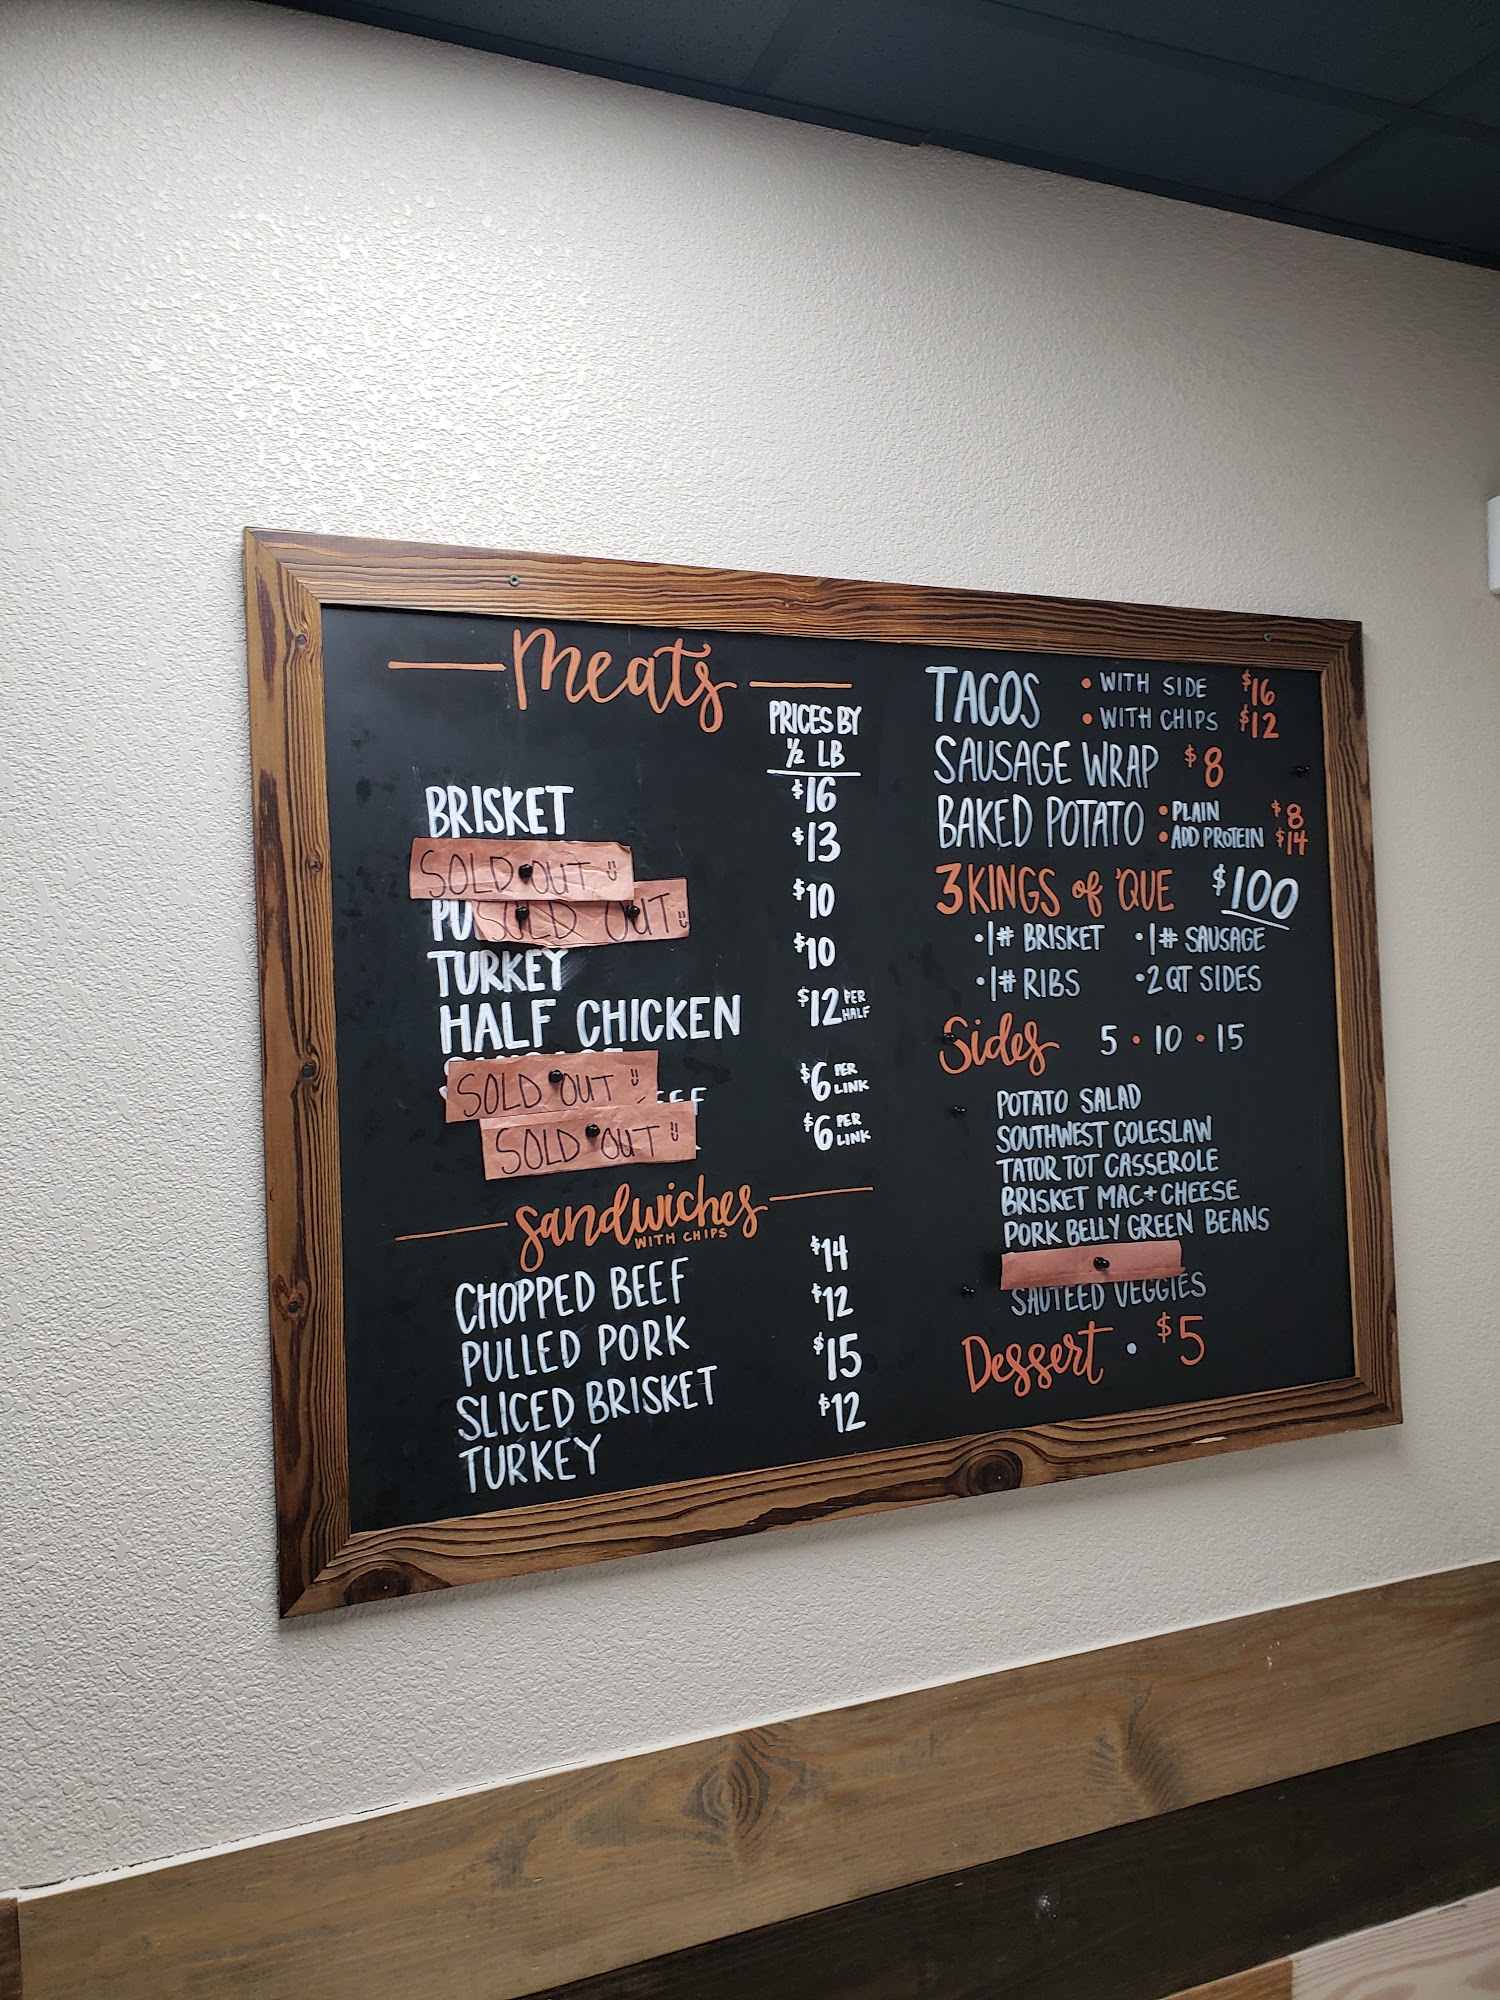 Meats
PRICES BY
½ LB
BRISKET $16
SOLD OUT $13
SOLD OUT $10
TURKEY $10
HALF CHICKEN $12 PER HALF
SOLD OUT $6 PER LINK
SOLD OUT $6 PER LINK
Sandwiches
WITH CHIPS
CHOPPED BEEF $14
PULLED PORK $12
SLICED BRISKET $15
TURKEY $12
TACOS • WITH SIDE $16
• WITH CHIPS $12
SAUSAGE WRAP $8
BAKED POTATO • PLAIN $8
• ADD PROTEIN $14
3 KINGS of 'QUE $100
• 1# BRISKET • 1# SAUSAGE
• 1# RIBS • 2 QT SIDES
Sides 5 • 10 • 15
POTATO SALAD
SOUTHWEST COLESLAW
TATOR TOT CASSEROLE
BRISKET MAC + CHEESE
PORK BELLY GREEN BEANS
SAUTEED VEGGIES
Dessert • $5